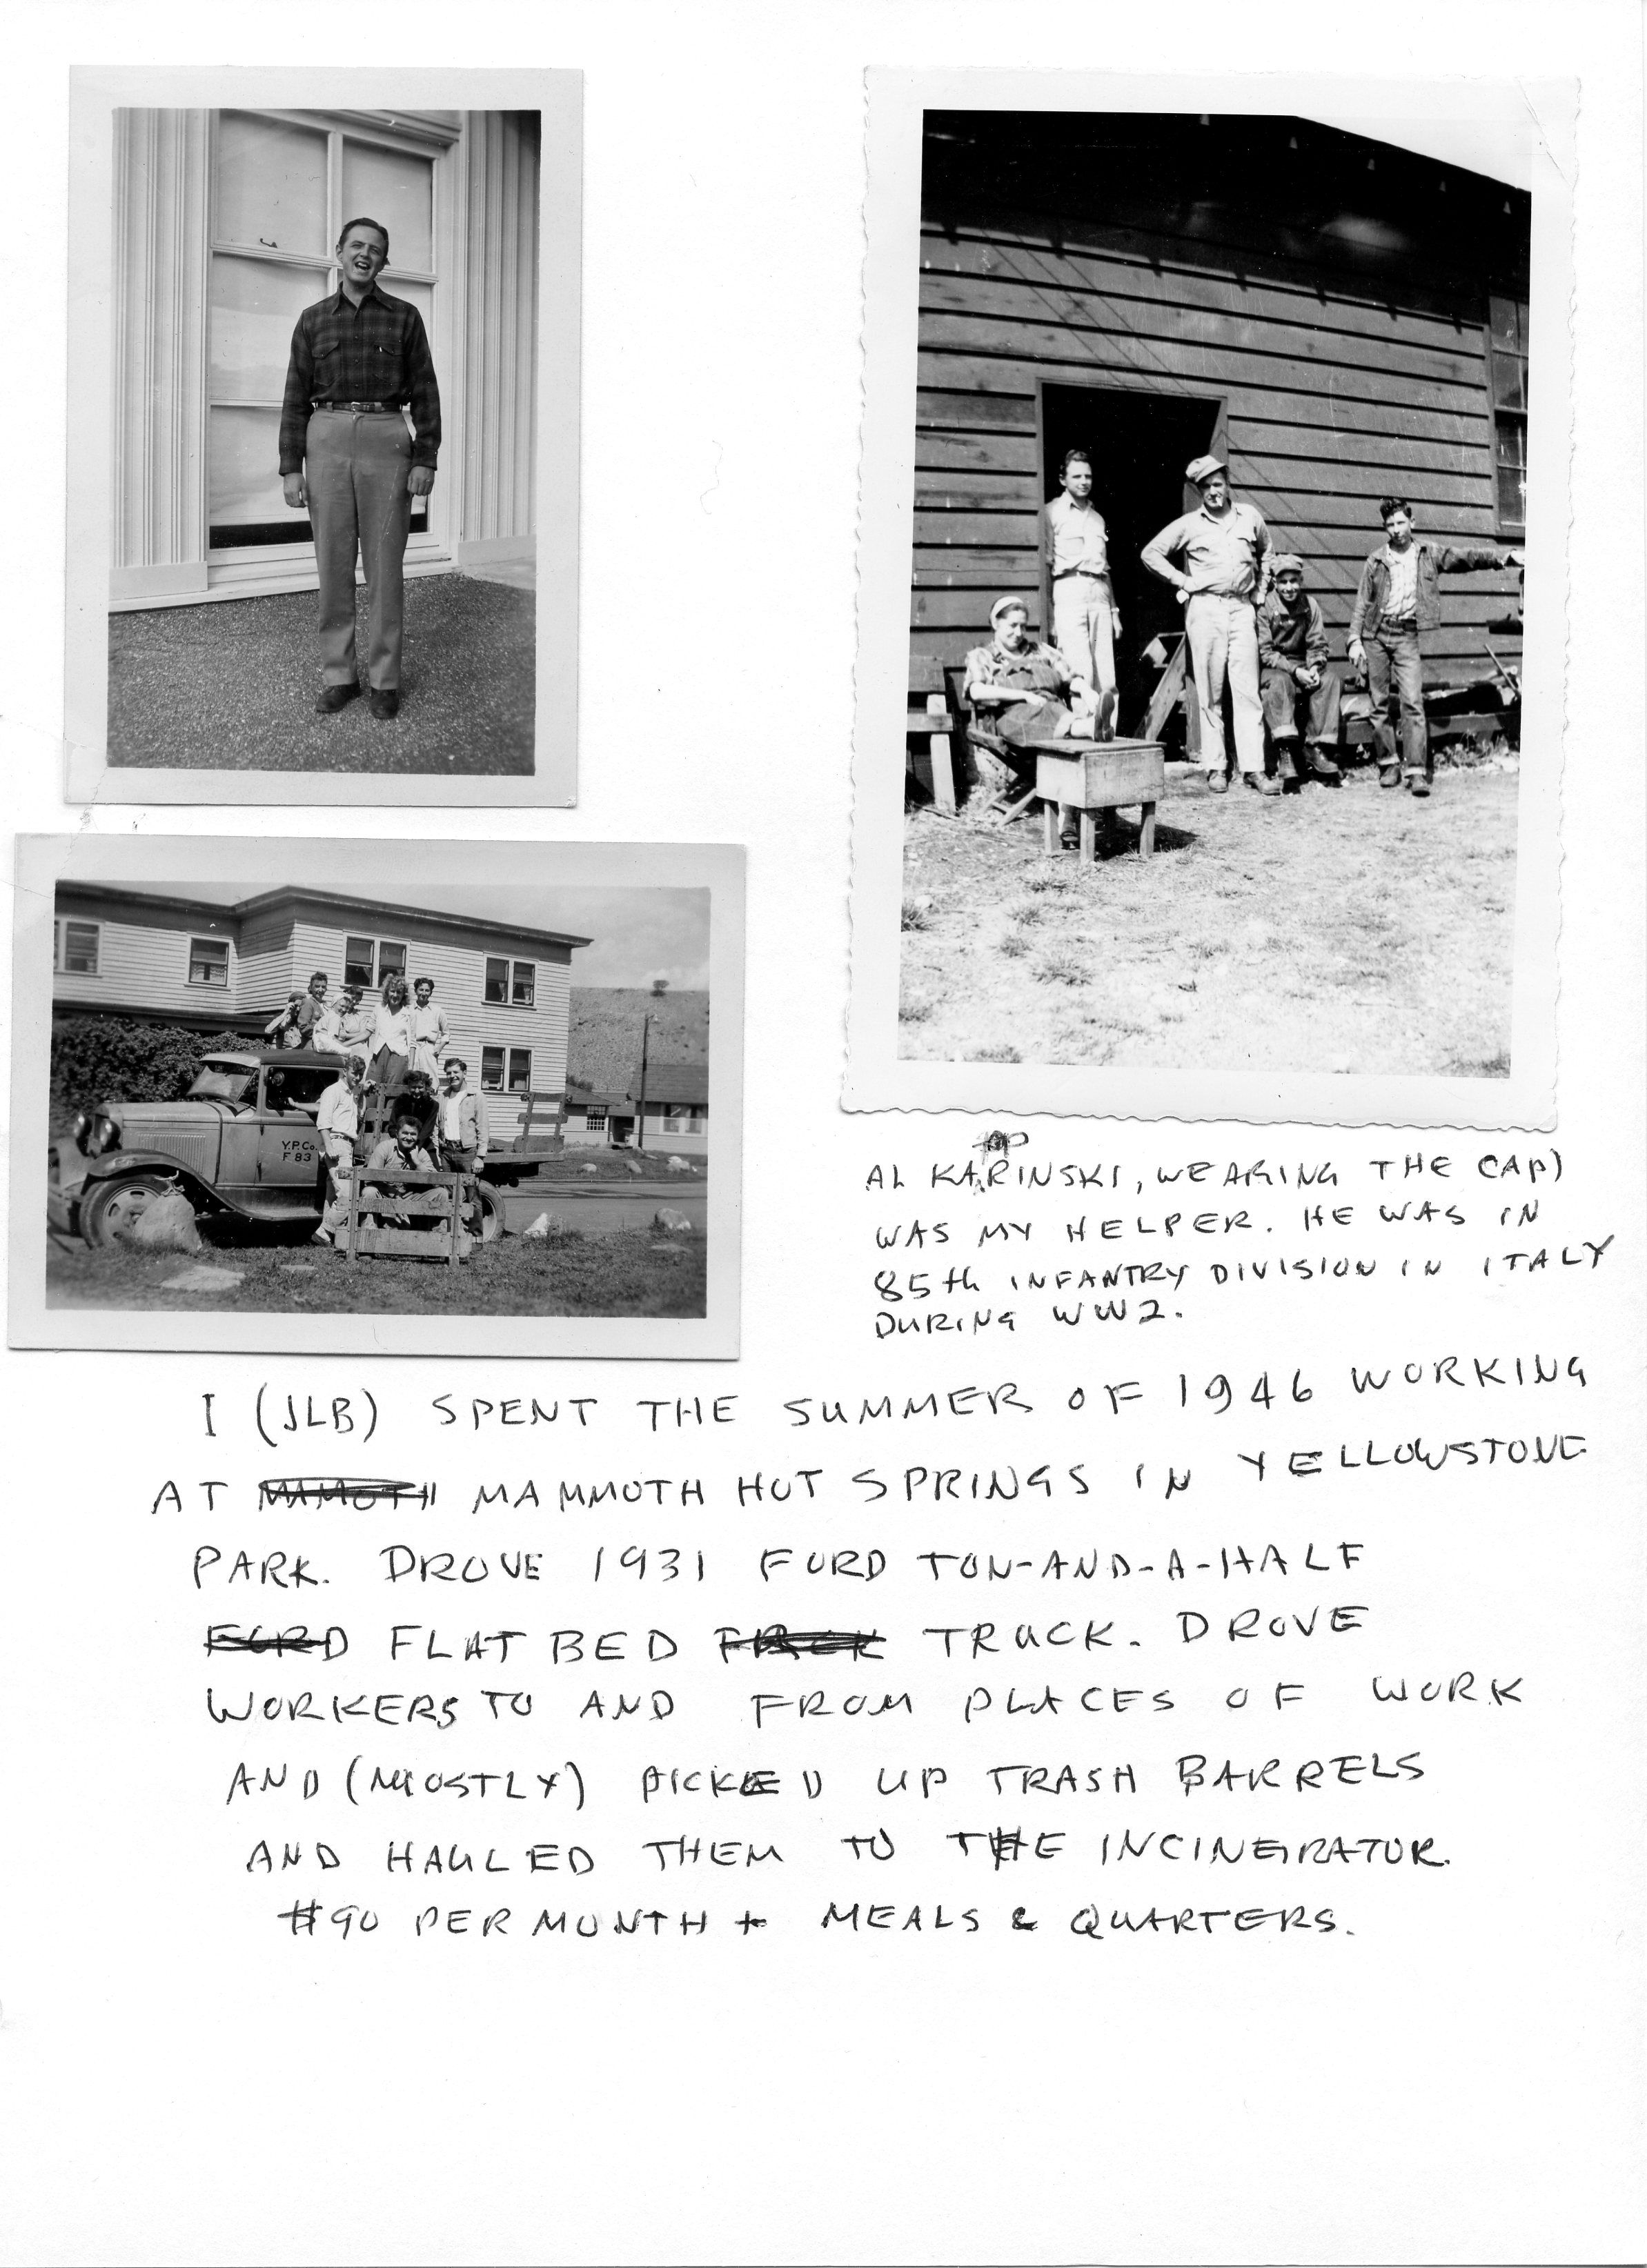 Y.P.Co.
F 83
AL KARINSKI, WEARING THE CAP)
WAS MY HELPER. HE WAS IN
85th INFANTRY DIVISION IN ITALY
DURING WW2.
I (JLB) SPENT THE SUMMER OF 1946 WORKING
AT MAMMOTH HOT SPRINGS IN YELLOWSTONE
PARK. DROVE 1931 FORD TON-AND-A-HALF
FLAT BED TRUCK. DROVE
WORKERS TO AND FROM PLACES OF WORK
AND (MOSTLY) PICKED UP TRASH BARRELS
AND HAULED THEM TO THE INCINERATOR.
$90 PER MONTH + MEALS & QUARTERS.